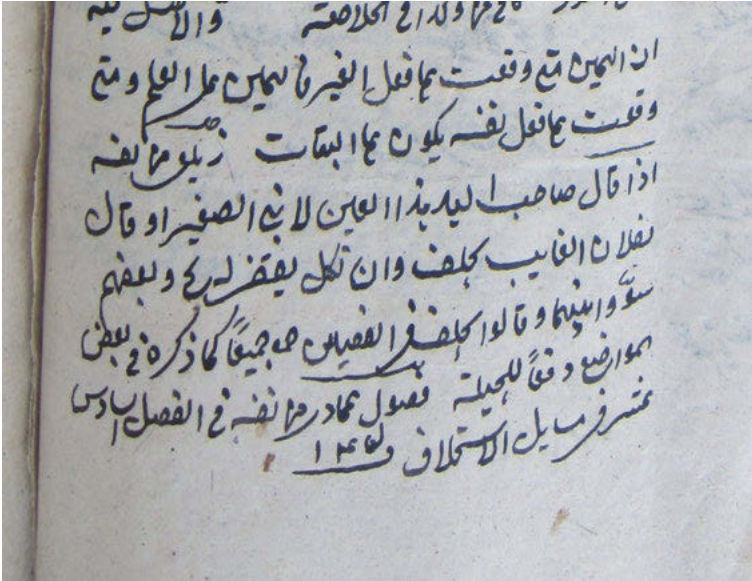 في ولدا في الخلاصة والاصل فيه
ان اليمين متى وقعت على فعل الغير فاليمين على العلم ومتى
وقعت على فعل نفسه يكون على البتات زيلعي
اذا قال صاحب اليد هذا العين لابني الصغير او قال
لفلان الغايب يحلف وان نكل يقضى وبعضهم
سوّوا بينهما وقالوا يحلف في الفصلين جميعاً كما ذكره في بعض
المواضع دفعاً للحيلة فصول عمادي في الفصل السادس
عشر في مسايل الاستحلاف